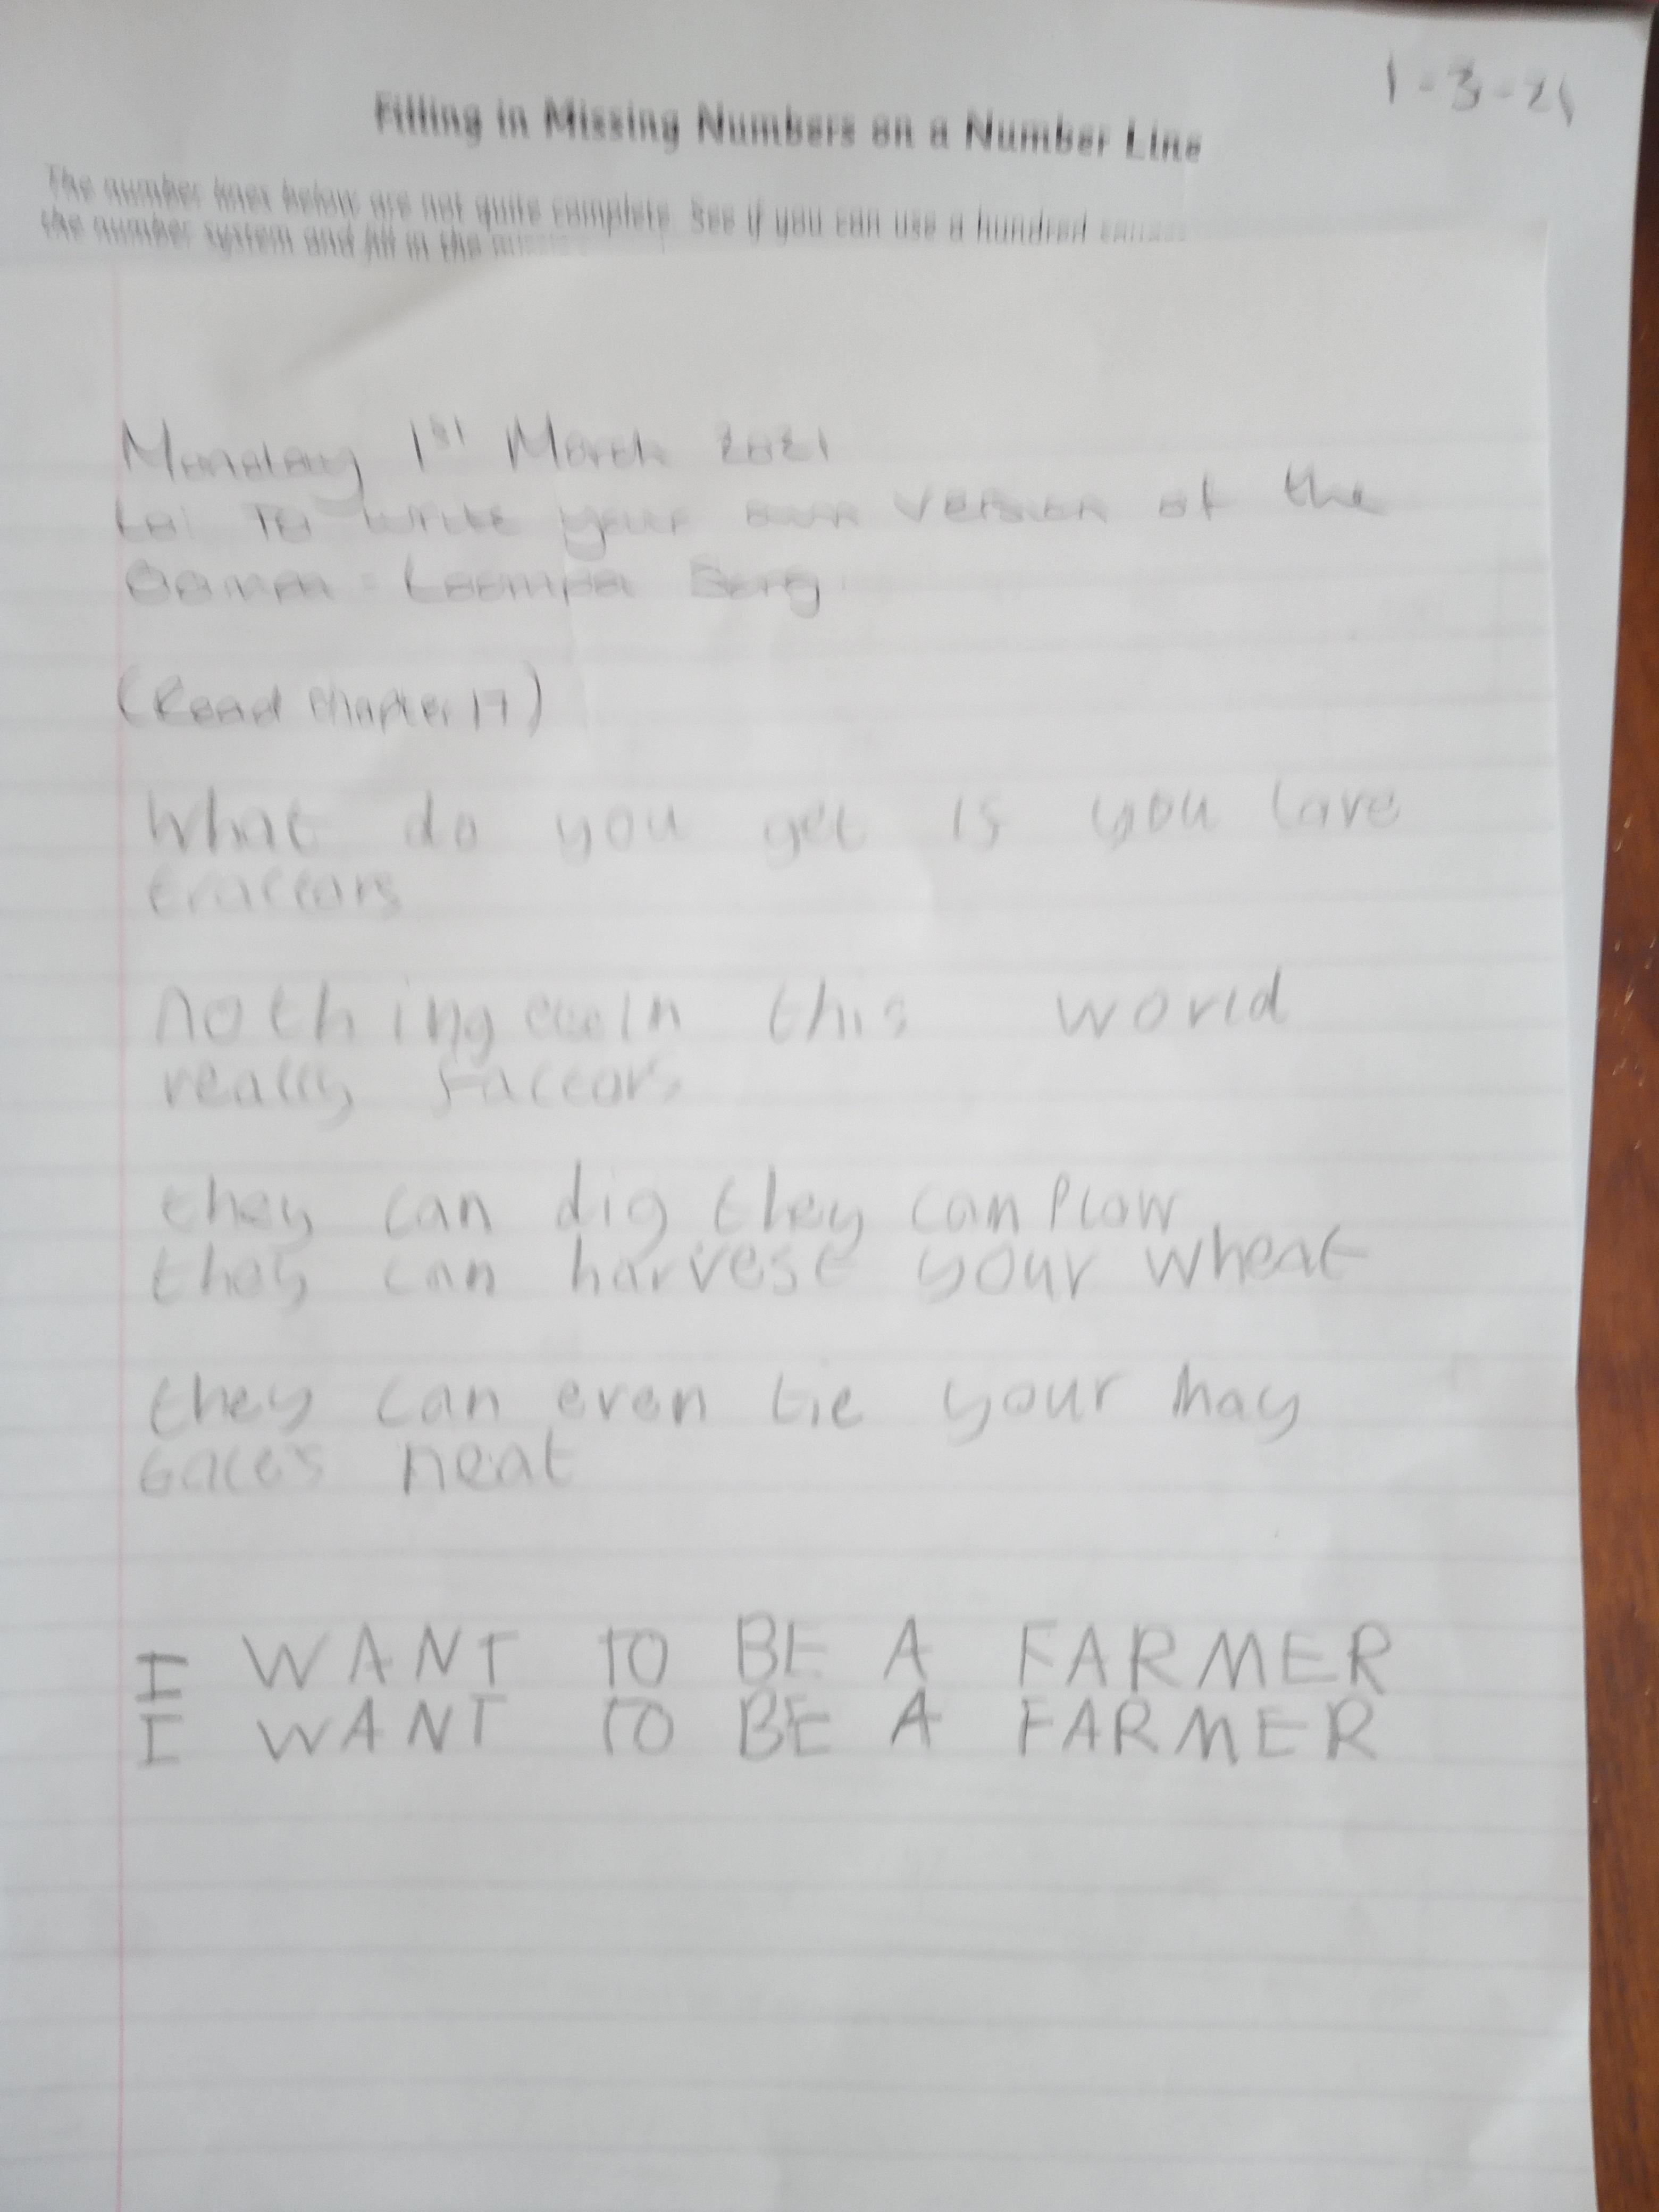 1-3-21
Filling in Missing Numbers on a Number Line
The number lines below are not quite complete. See if you can use a hundred
the number system and fill in the
Monday 1st March 2021
Lo: To write your own version of the
Oompa-Loompa Song.
(Read Chapter 17)
What do you get is you love
tractors
nothing in this world
really factors
they can dig they can plow
they can harvest your wheat
they can even tie your hay
bales neat
I WANT TO BE A FARMER
I WANT TO BE A FARMER